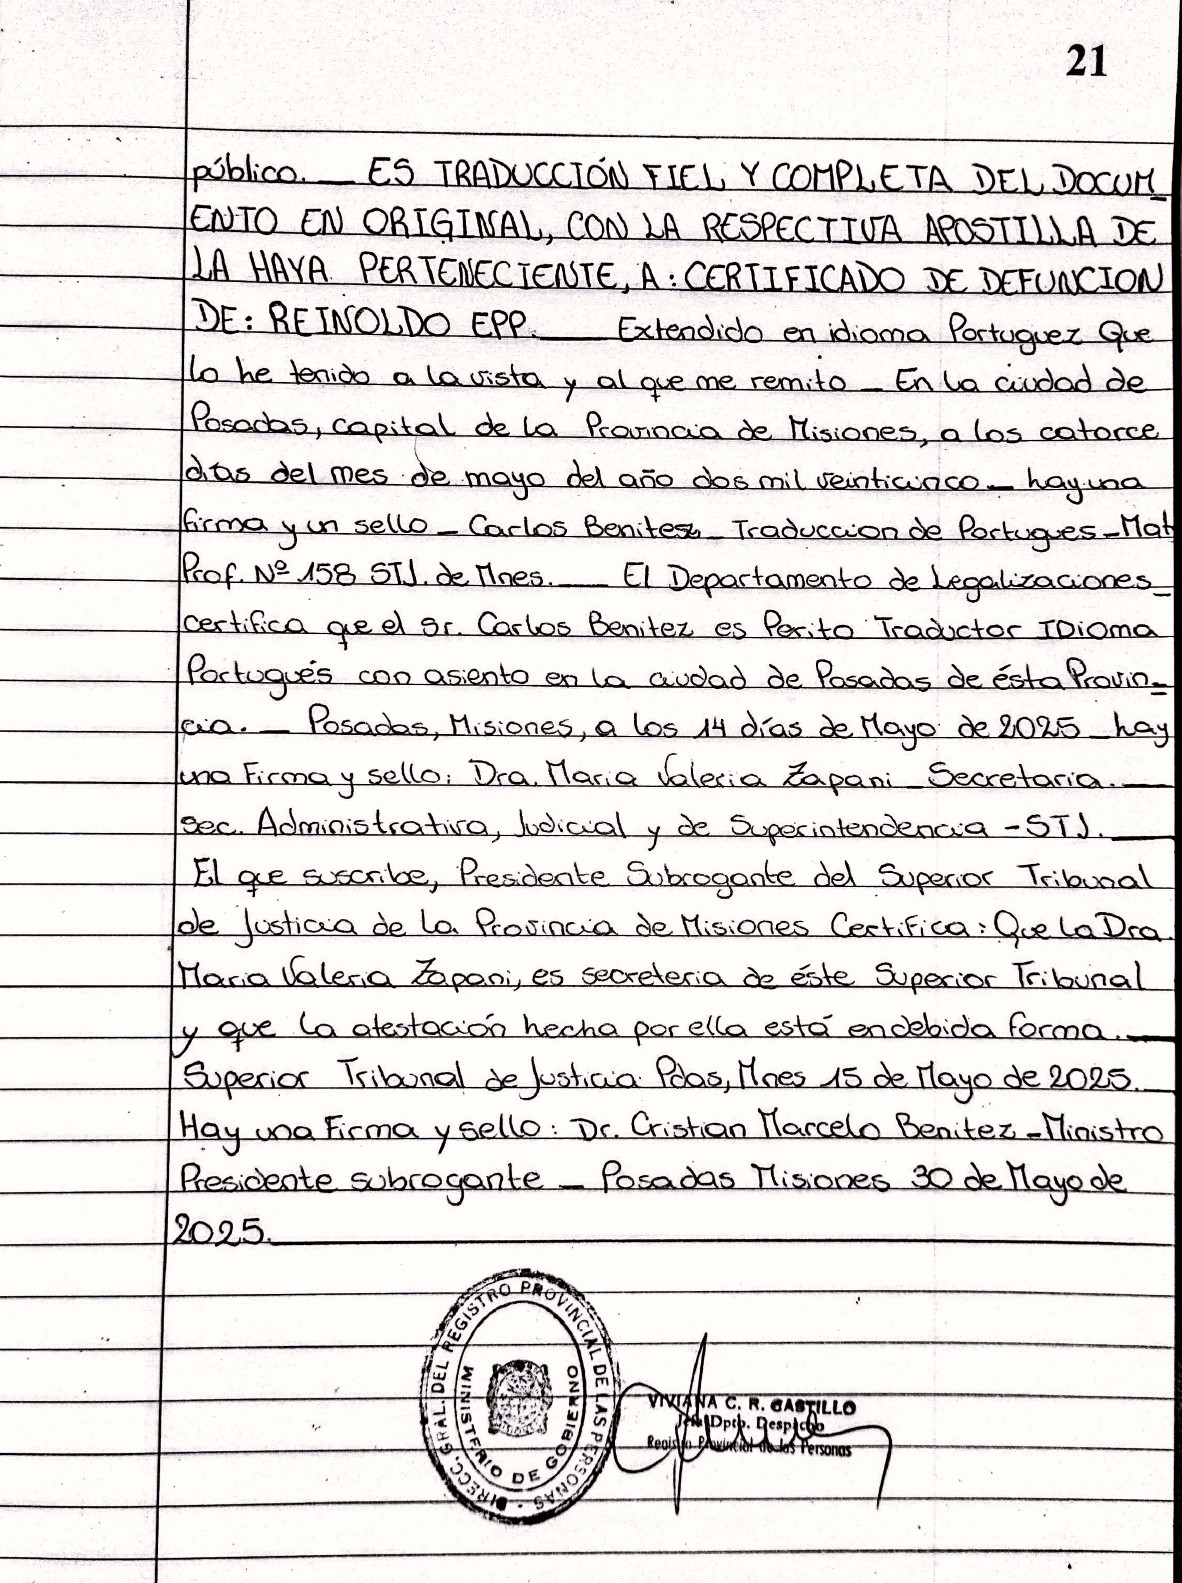 21
público. __ ES TRADUCCIÓN FIEL Y COMPLETA DEL DOCUM_
ENTO EN ORIGINAL, CON LA RESPECTIVA APOSTILLA DE
LA HAYA PERTENECIENTE, A: CERTIFICADO DE DEFUNCION
DE: REINOLDO EPP. ____ Extendido en idioma Portuguez Que
lo he tenido a la vista y al que me remito _ En la ciudad de
Posadas, capital de la Provincia de Misiones, a los catorce
días del mes de mayo del año dos mil veinticinco _ hay una
firma y un sello _ Carlos Benitez _ Traduccion de Portugues _ Mat
Prof. Nº 158 STJ. de Mnes. ___ El Departamento de Legalizaciones_
certifica que el Sr. Carlos Benitez es Perito Traductor IDioma
Portugués con asiento en la ciudad de Posadas de ésta Provin_
cia. __ Posadas, Misiones, a los 14 días de Mayo de 2025 _ hay
una Firma y sello: Dra. Maria Valeria Zapani _ Secretaria. ___
Sec. Administrativa, Judicial y de Superintendencia - STJ. ____
El que suscribe, Presidente Subrogante del Superior Tribunal
de Justicia de la Provincia de Misiones Certifica: Que la Dra.
Maria Valeria Zapani, es secreteria de éste Superior Tribunal
y que la atestación hecha por ella está en debida forma. ___
Superior Tribunal de Justicia. Pdas, Mnes 15 de Mayo de 2025. __
Hay una Firma y sello: Dr. Cristian Marcelo Benitez _ Ministro
Presidente subrogante _ Posadas Misiones 30 de Mayo de
2025. ____
DIRECC. GRAL. DEL REGISTRO PROVINCIAL DE LAS PERSONAS
MINISTERIO DE GOBIERNO
VIVIANA C. R. CASTILLO
Jefe Dpto. Despacho
Registro Provincial de las Personas